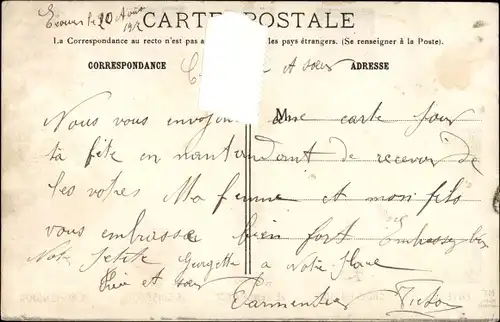 20 Août
1912
CARTE POSTALE
La Correspondance au recto n'est pas a les pays étrangers. (Se renseigner à la Poste).
CORRESPONDANCE et sœur ADRESSE
Nous vous envoyons une carte pour
M
la fête en nantendant de recevoir de
les votres Ma femme et mon fils
vous embrasse bien fort Embrassez bien
Notre petite Georgette a notre place
et sœur
Parmentier Victor